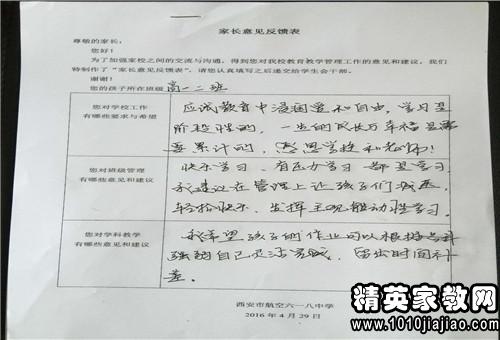 家长意见反馈表
尊敬的家长：
您好！
为了加强家校之间的交流与沟通，得到您对我校教育教学管理工作的意见和建议，我们
特制作了“家长意见反馈表”，请您认真填写之后递交给学生会干部。
谢谢！
您的孩子所在班级 高一二班
您对学校工作
有哪些要求与希望
应试教育中浸润爱和自由，学习是
阶段性的，一生的成长万幸福是需
要累计的，感恩学校和老师！
您对班级管理
有哪些意见和建议
快乐学习，有压力学习 都是学习
我建议在管理上让孩子们减压，
轻松快乐，发挥主观能动性学习。
您对学科教学
有哪些意见和建议
我希望孩子的作业可以根据
强弱自己灵活完成，留出时间补
差。
西安市航空六一八中学
2016 年 4 月 29 日
精英家教网
www.1010jiajiao.com